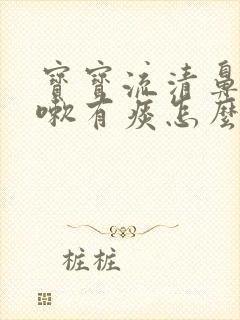 寶寶流清鼻
嗽有痰怎麼
桩桩